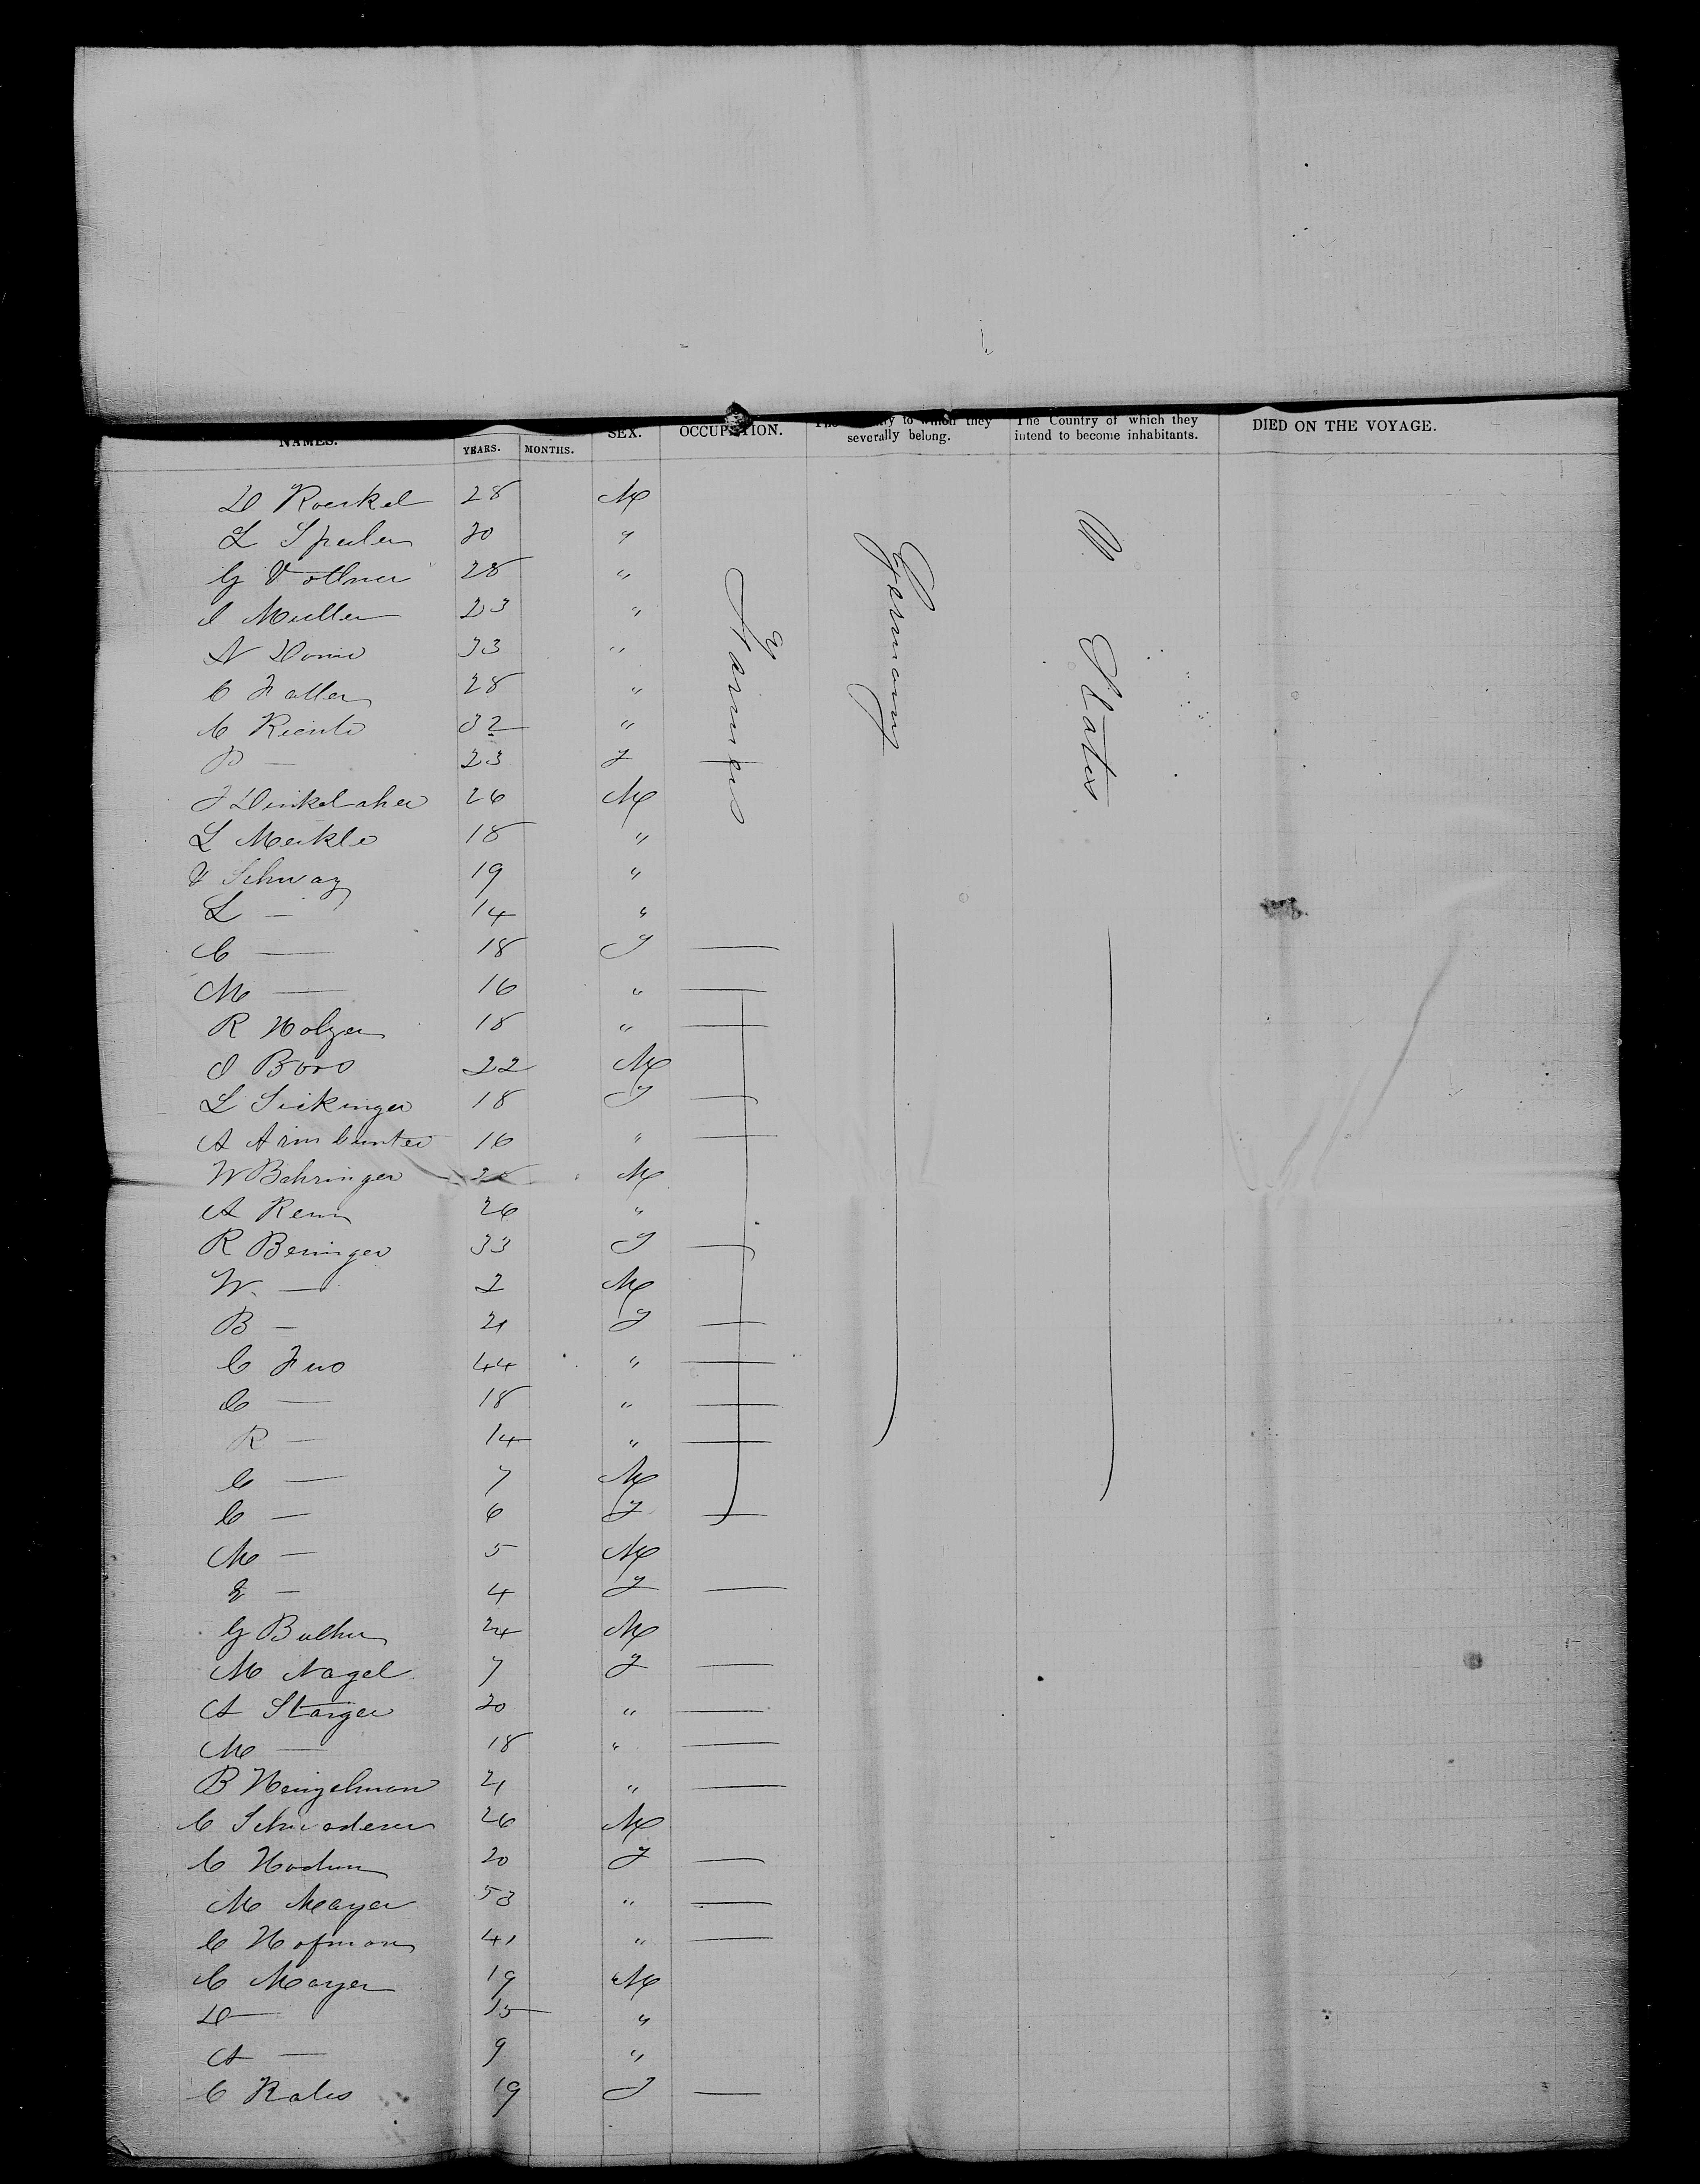 NAMES. YEARS. MONTHS. SEX. OCCUPATION. to which they severally belong. The Country of which they intend to become inhabitants. DIED ON THE VOYAGE.
Farmers
Germany
U States
D Roeskel 28 M
L Speiler 20 "
G Vollmer 28 "
I Muller 23 "
N Dorne 33 "
C Faller 28 "
C Riente 32 "
P — 23 F —
J Dinkelaker 26 M
L Merkle 18 "
F Schwaz 19 "
L — 14 "
C — 18 F —
M — 16 " —
R Holzer 18 " —
I Boos 22 M
L Sickinger 18 F —
A Armbunter 16 " —
W Bahringer M
A Renn 26 "
R Beringer 33 F —
W. — 2 M
B — 21 F —
C Fuo 44 " —
C — 18 " —
R — 14 " —
C — 7 M
C — 6 F —
M — 5 M
E — 4 F —
G Bucher 24 M
M Nagel 7 F —
A Staiger 20 " —
M — 18 " —
B Heizelman 21 " —
C Schwaderer 26 M
C Hodum 20 F —
M Mayer 53 " —
C Hofman 41 " —
C Mayer 19 M
D — 15 "
A — 9 "
C Rales 19 F —